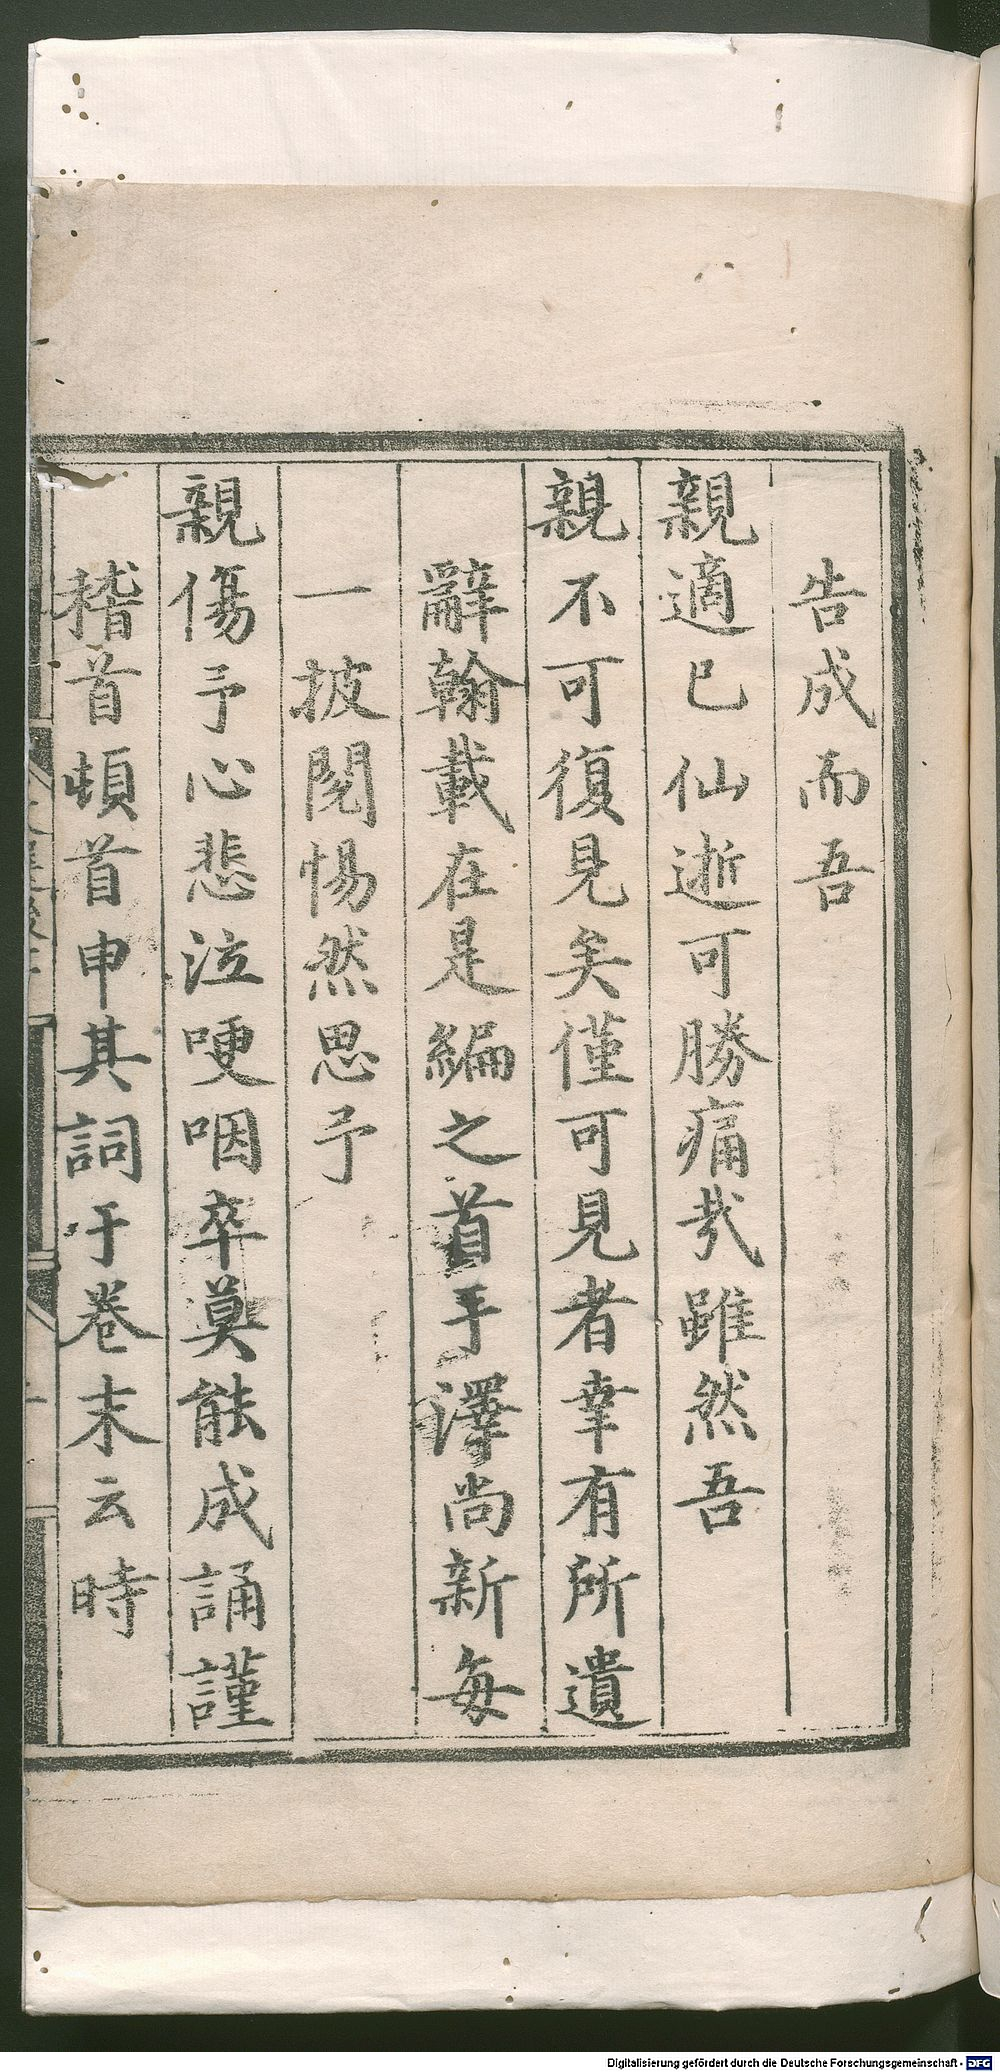 告成而吾
親適已仙逝可勝痛哉雖然吾
親不可復見矣僅可見者幸有所遺
辭翰載在是編之首手澤尚新每
一披閱惕然思予
親傷予心悲泣哽咽卒莫能成誦謹
稽首頓首申其詞于卷末云時
Digitalisierung gefördert durch die Deutsche Forschungsgemeinschaft - DFG